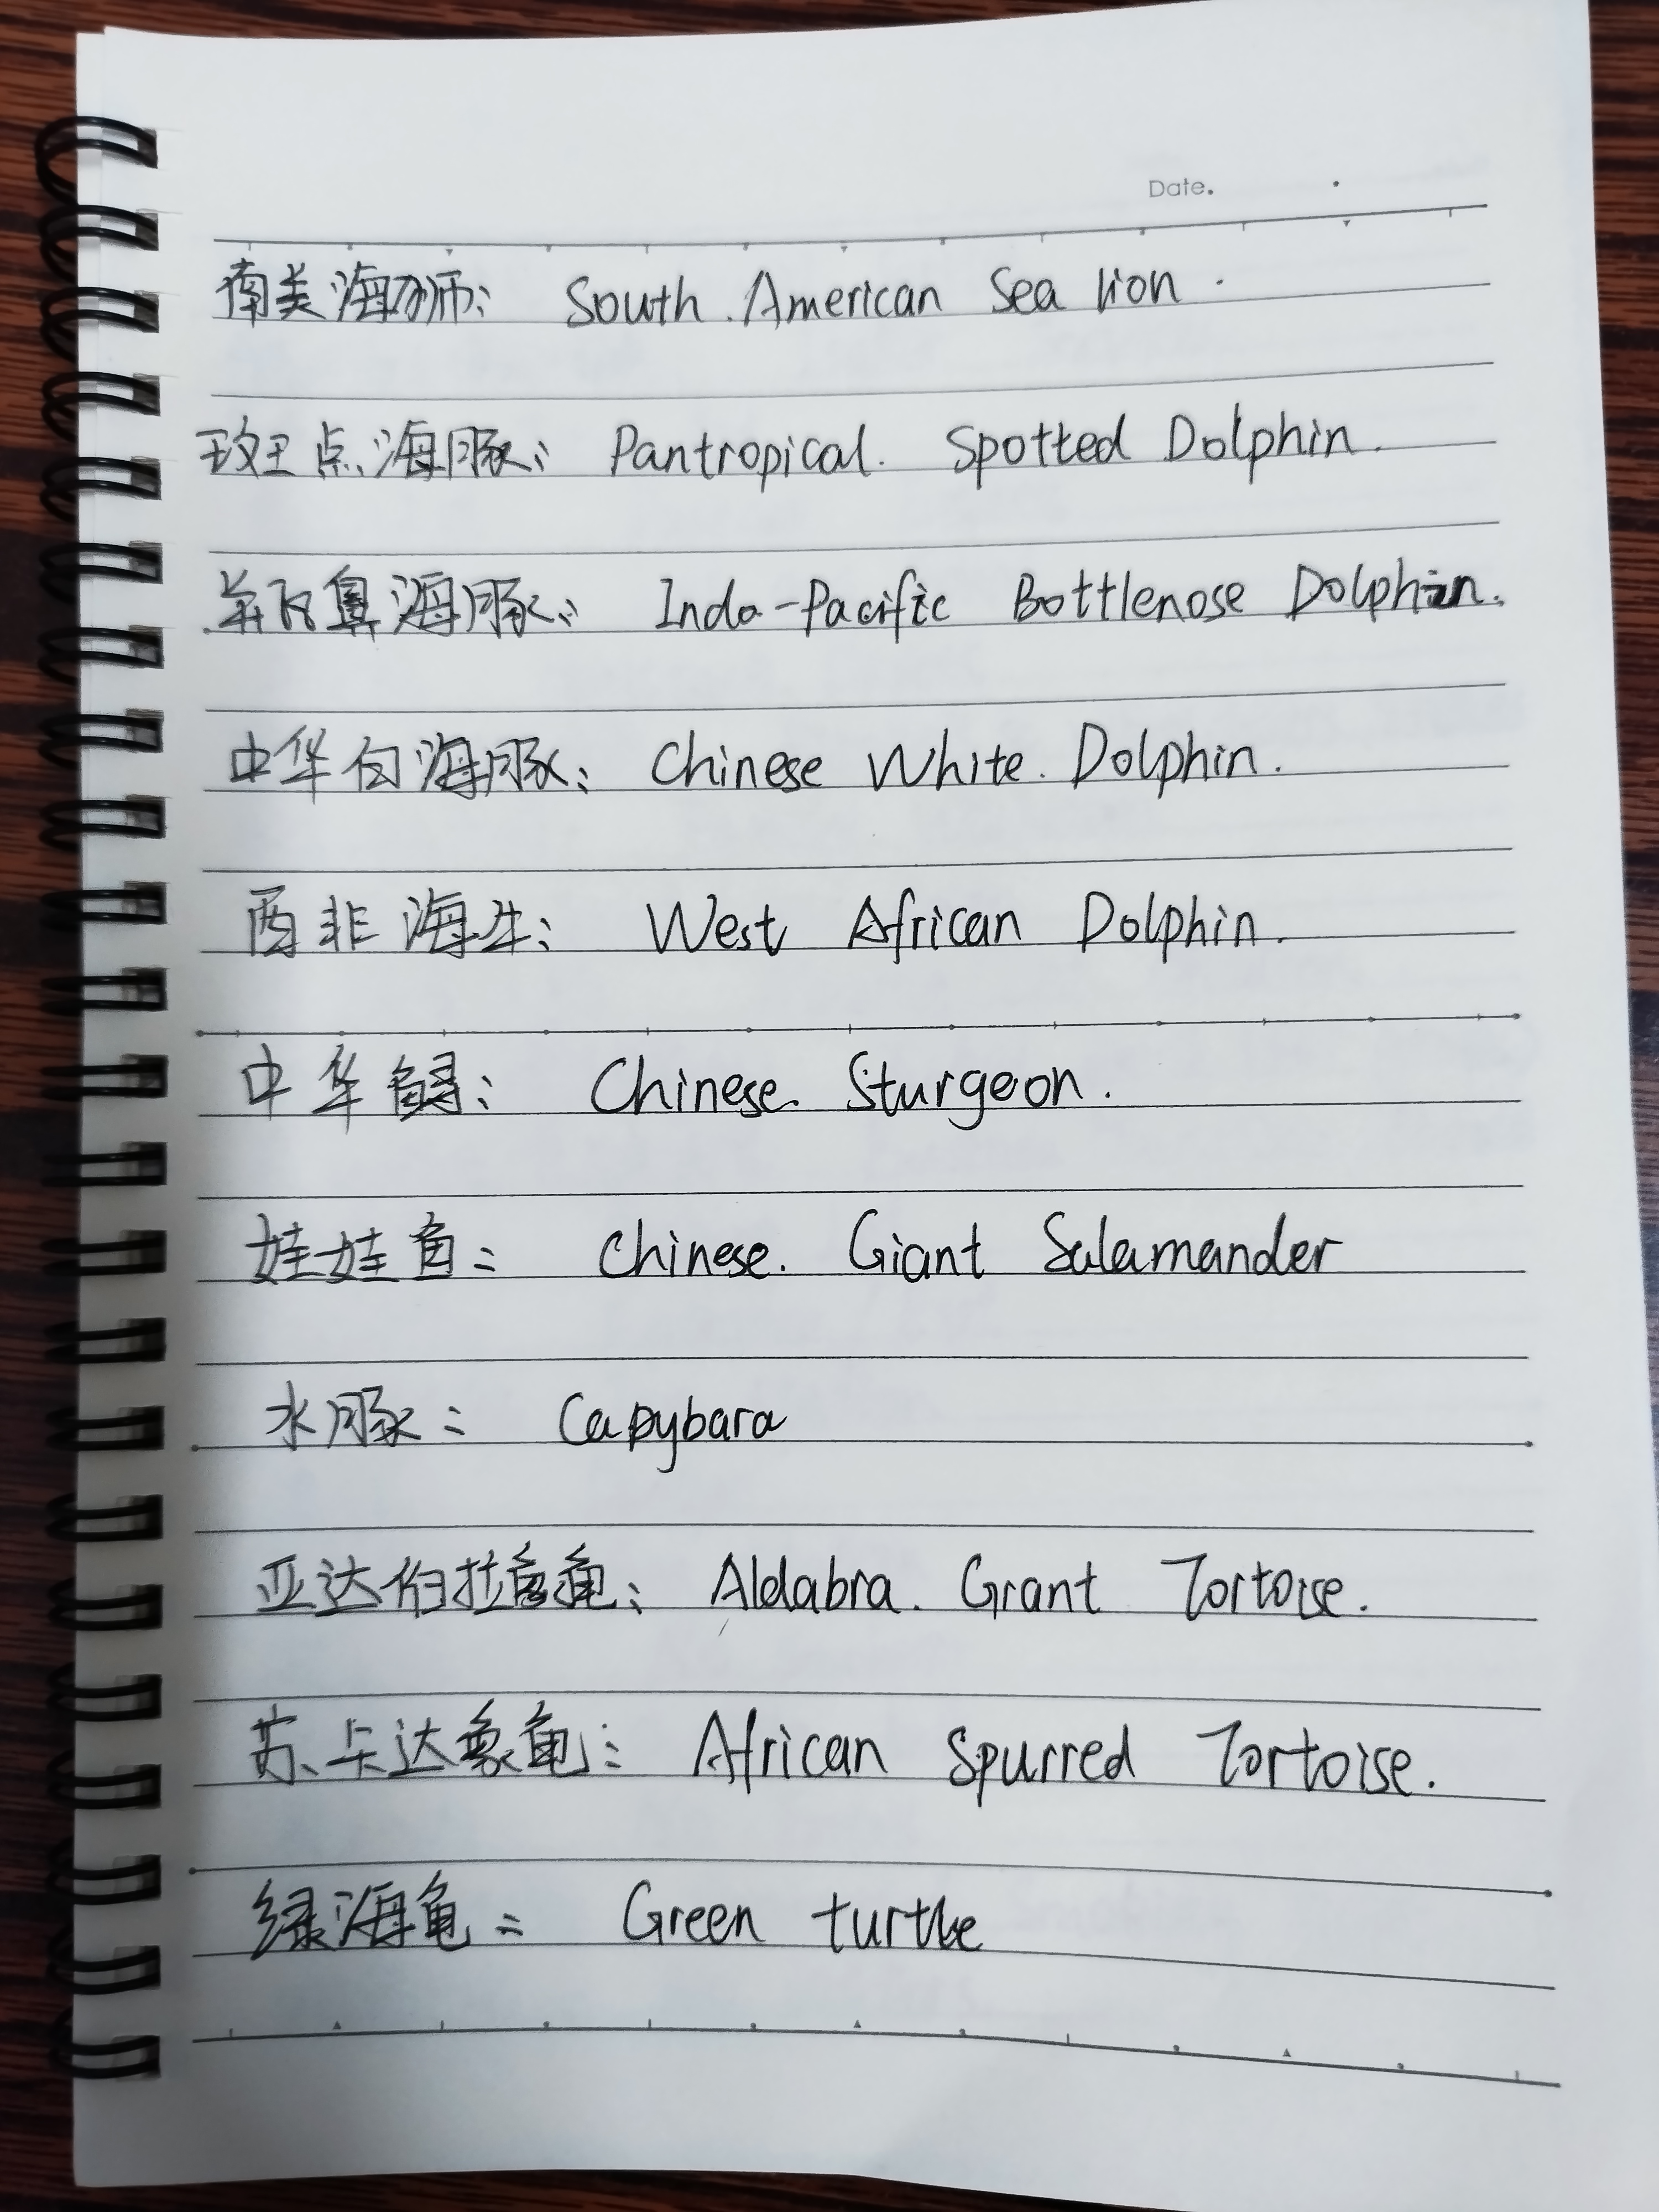 Date.
南美海狮: South American Sea lion.
斑点海豚: Pantropical. Spotted Dolphin.
鼻海豚: Indo-Pacific Bottlenose Dolphin.
中华白海豚: Chinese White. Dolphin.
西非海牛: West African Dolphin.
中华鲟: Chinese. Sturgeon.
娃娃鱼: Chinese. Giant Salamander
水豚: Capybara
亚达伯拉象龟: Aldabra. Grant Tortoise.
苏卡达象龟: African Spurred Tortoise.
绿海龟: Green turtle